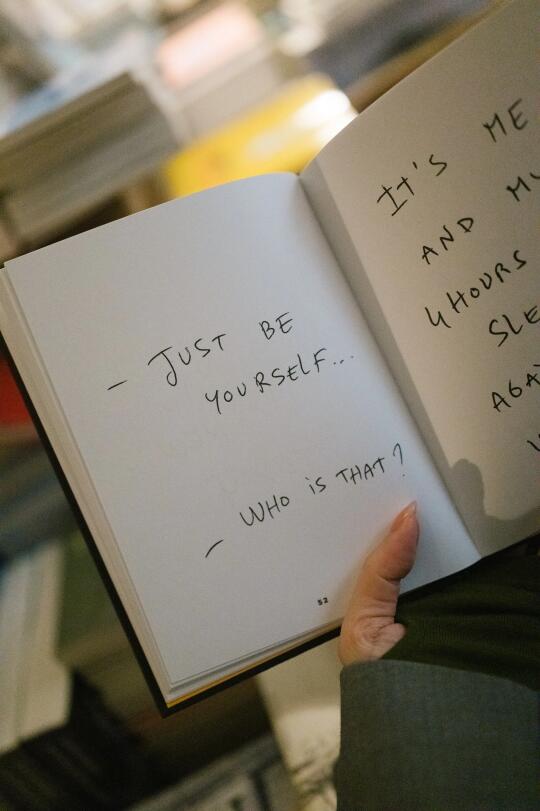 – JUST BE
YOURSELF...
– WHO iS THAT?
52
IT'S ME
AND
4 HOURS